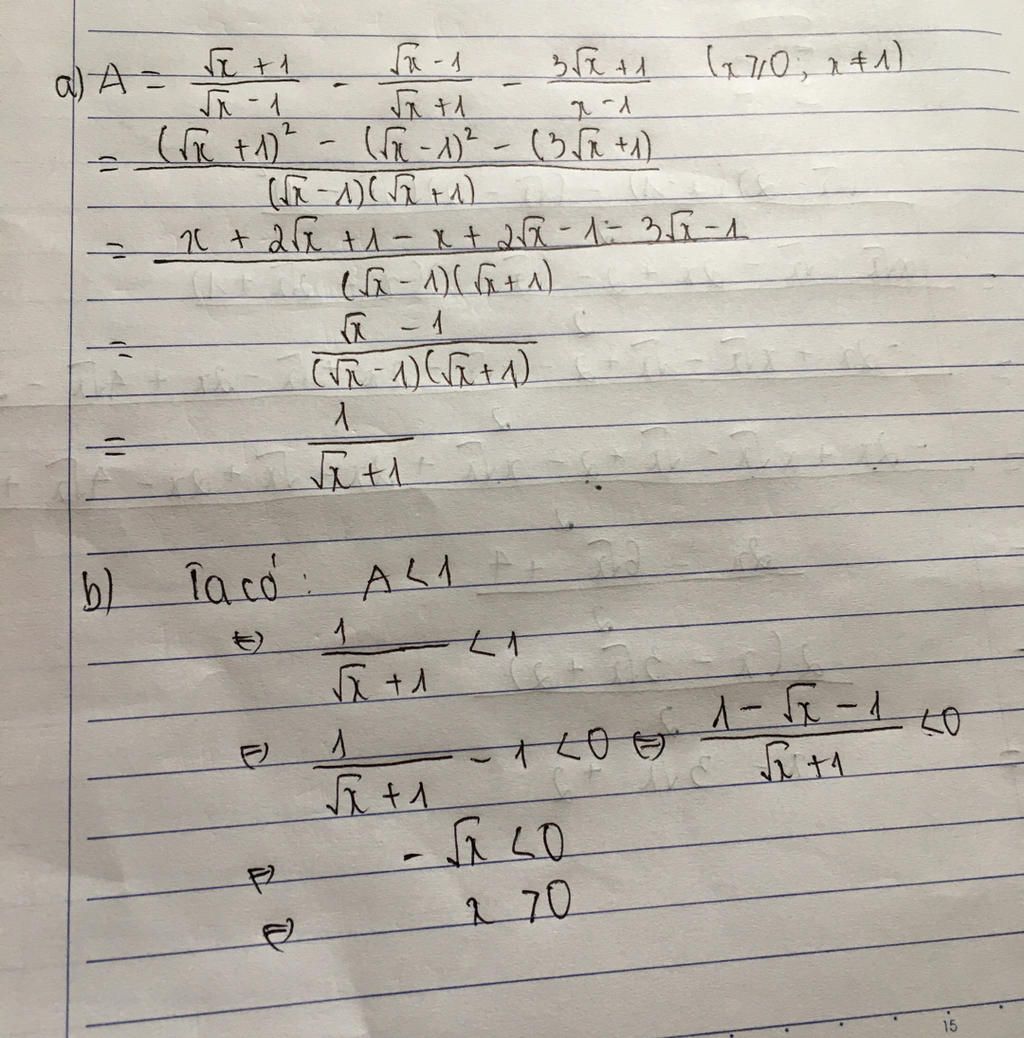 a) A = (√x + 1)/(√x - 1) - (√x - 1)/(√x + 1) - (3√x + 1)/(x - 1) (x ≥ 0; x ≠ 1)
= ((√x + 1)² - (√x - 1)² - (3√x + 1))/((√x - 1)(√x + 1))
= (x + 2√x + 1 - x + 2√x - 1 - 3√x - 1)/((√x - 1)(√x + 1))
= (√x - 1)/((√x - 1)(√x + 1))
= 1/(√x + 1)
b) Ta có: A < 1
⇔ 1/(√x + 1) < 1
⇔ 1/(√x + 1) - 1 < 0 ⇔ (1 - √x - 1)/(√x + 1) < 0
⇔ -√x < 0
⇔ x > 0
15